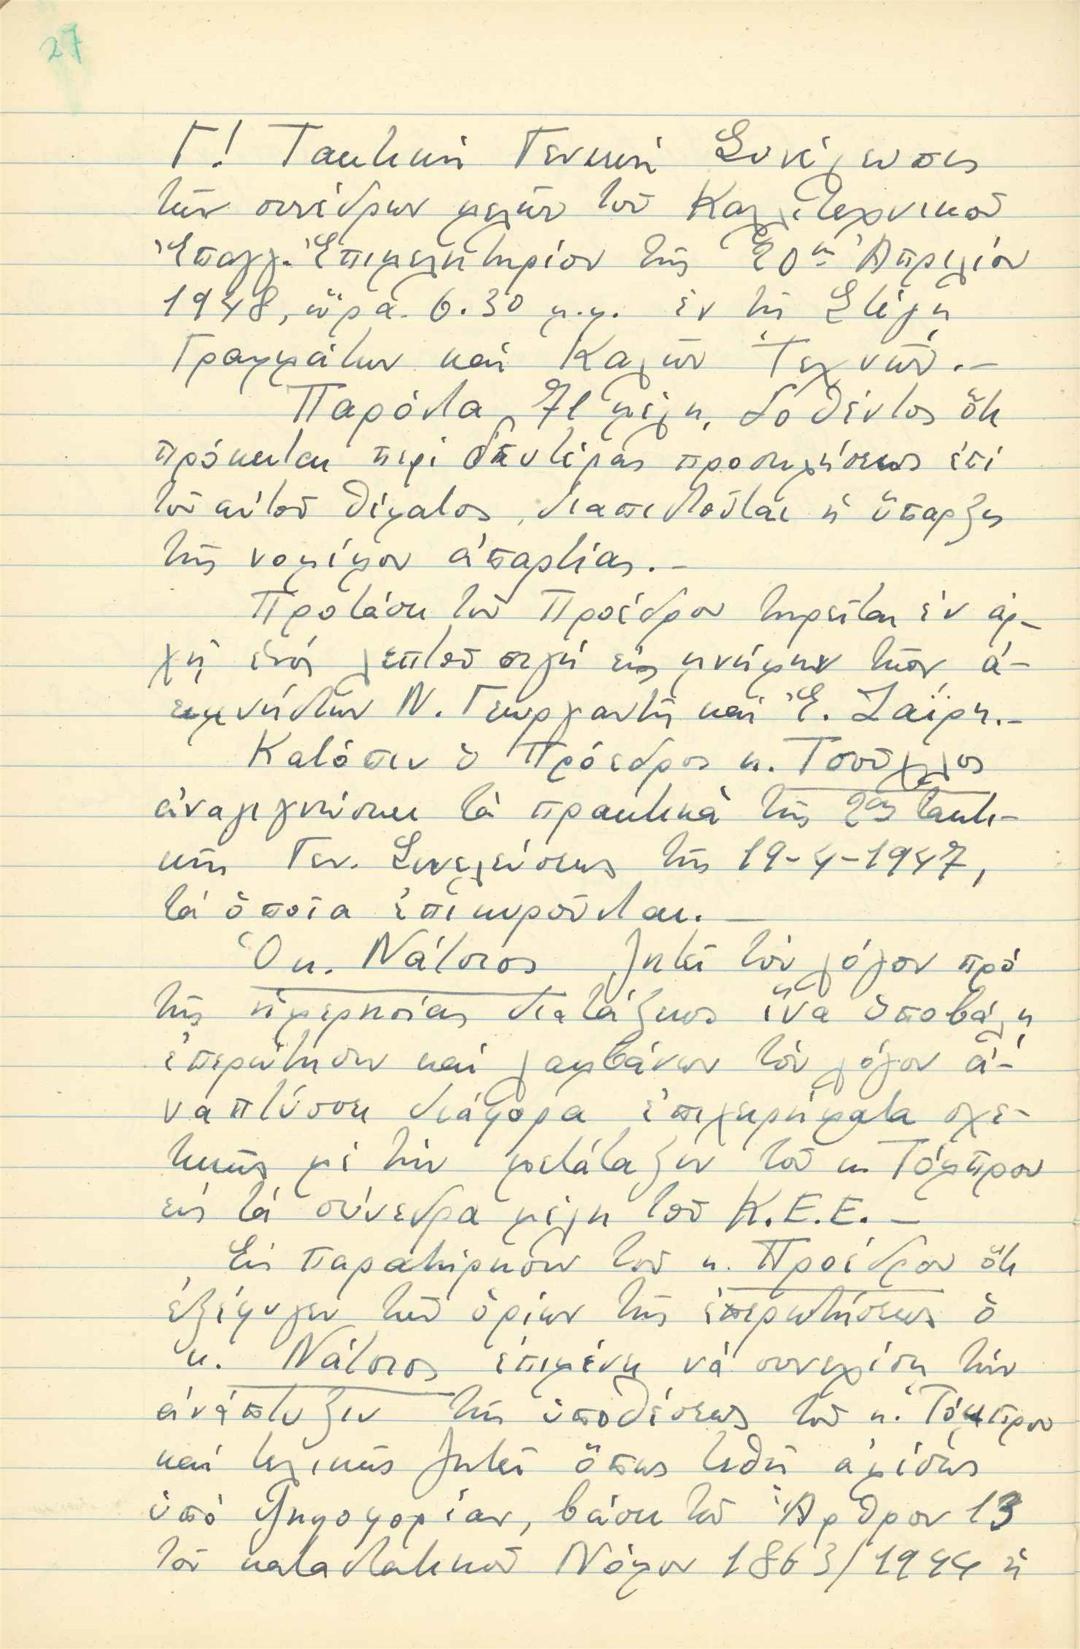 27
Γ! Τακτική Γενική Συνέλευσις
τῶν συνέδρων μελῶν τοῦ Καλλιτεχνικοῦ
Ἐπαγγ. Ἐπιμελητηρίου τῆς 20ῆς Ἀπριλίου
1948, ὥρα 6.30 μ.μ. ἐν τῇ Στέγῃ
Γραμμάτων καί Καλῶν Τεχνῶν.—
Παρόντα 71 μέλη, δοθέντος ὅτι
πρόκειται περί δευτέρας προσκλήσεως ἐπί
τοῦ αὐτοῦ θέματος, διαπιστοῦται ἡ ὕπαρξις
τῆς νομίμου ἀπαρτίας.—
Προτάσει τοῦ Προέδρου τηρεῖται ἐν ἀρ-
χῇ ἑνός λεπτοῦ σιγή εἰς μνήμην τῶν ἀ-
ειμνήστων Ν. Γεωργαντῆ καί Ἑ. Ζαΐρη.—
Κατόπιν ὁ Πρόεδρος κ. Τσοῦχλος
ἀναγιγνώσκει τά πρακτικά τῆς 2ας τακτι-
κῆς Γεν. Συνελεύσεως τῆς 19-4-1947,
τά ὁποῖα ἐπικυροῦνται.—
Ὁ κ. Νάτσιος ζητεῖ τόν λόγον πρό
τῆς ἡμερησίας διατάξεως ἵνα ὑποβάλῃ
ἐπερώτησιν καί λαμβάνων τόν λόγον ἀ-
ναπτύσσει διάφορα ἐπιχειρήματα σχε-
τικῶς μέ τήν μετάταξιν τοῦ κ. Τόμπρου
εἰς τά σύνεδρα μέλη τοῦ Κ.Ε.Ε.—
Εἰς παρατήρησιν τοῦ κ. Προέδρου ὅτι
ἐξέφυγεν τῶν ὁρίων τῆς ἐπερωτήσεως ὁ
κ. Νάτσιος ἐπιμένει νά συνεχίσῃ τήν
ἀνάπτυξιν τῆς ὑποθέσεως τοῦ κ. Τόμπρου
καί τελικῶς ζητεῖ ὅπως τεθῇ ἀμέσως
ὑπό ψηφοφορίαν, βάσει τοῦ Ἄρθρου 13
τοῦ καταστατικοῦ Νόμου 1863/1944 ἡ